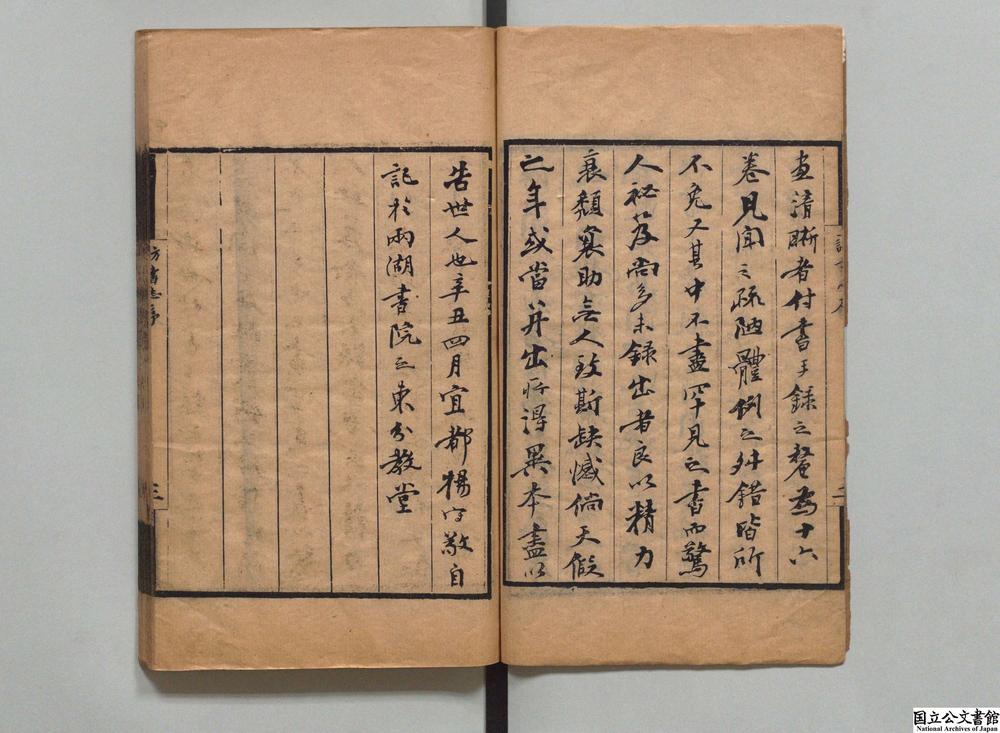 畫清晰者付書手錄之釐為十六
卷見聞之疏陋體例之舛錯皆所
不免又其中不盡罕見之書而驚
人祕笈尚多未錄出者良以精力
衰頹襄助無人致斯缺憾倘天假
之年或當并出所得異本盡以
告世人也辛丑四月宜都楊守敬自
記於兩湖書院之東分教堂
二
訪書志序
三
国立公文書館
National Archives of Japan